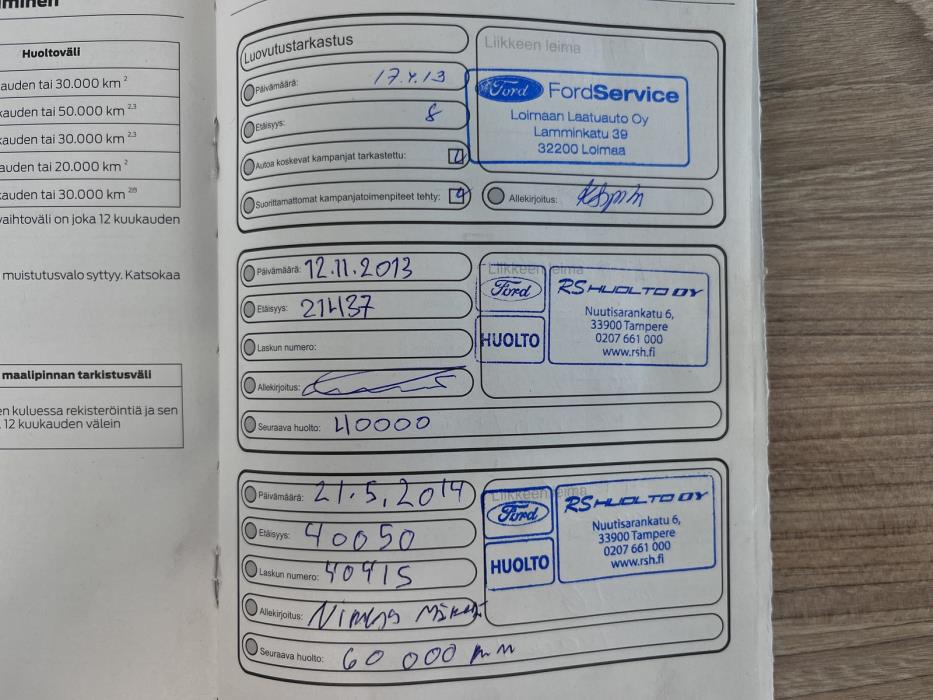 minen
Huoltoväli
kauden tai 30.000 km 2
kauden tai 50.000 km 2,3
kauden tai 30.000 km 2,3
auden tai 20.000 km 2
kauden tai 30.000 km
vaihtoväli on joka 12 kuukauden
muistutusvalo syttyy. Katsokaa
maalipinnan tarkistusväli
en kuluessa rekisteröintiä ja sen
12 kuukauden välein
Luovutustarkastus
Päivämäärä: 17.4.13
Etäisyys: 8
Autoa koskevat kampanjat tarkastettu:
Suorittamattomat kampanjatoimenpiteet tehty:
Liikkeen leima
Ford FordService
Loimaan Laatuauto Oy
Lamminkatu 39
32200 Loimaa
Allekirjoitus:
Päivämäärä: 12.11.2013
Etäisyys: 21437
Laskun numero:
Allekirjoitus:
Seuraava huolto: 40000
Liikkeen leima
Ford
HUOLTO
RS HUOLTO OY
Nuutisarankatu 6,
33900 Tampere
0207 661 000
www.rsh.fi
Päivämäärä: 21.5.2014
Etäisyys: 40050
Laskun numero: 40415
Allekirjoitus:
Seuraava huolto: 60 000
Liikkeen leima
Ford
HUOLTO
RS HUOLTO OY
Nuutisarankatu 6,
33900 Tampere
0207 661 000
www.rsh.fi